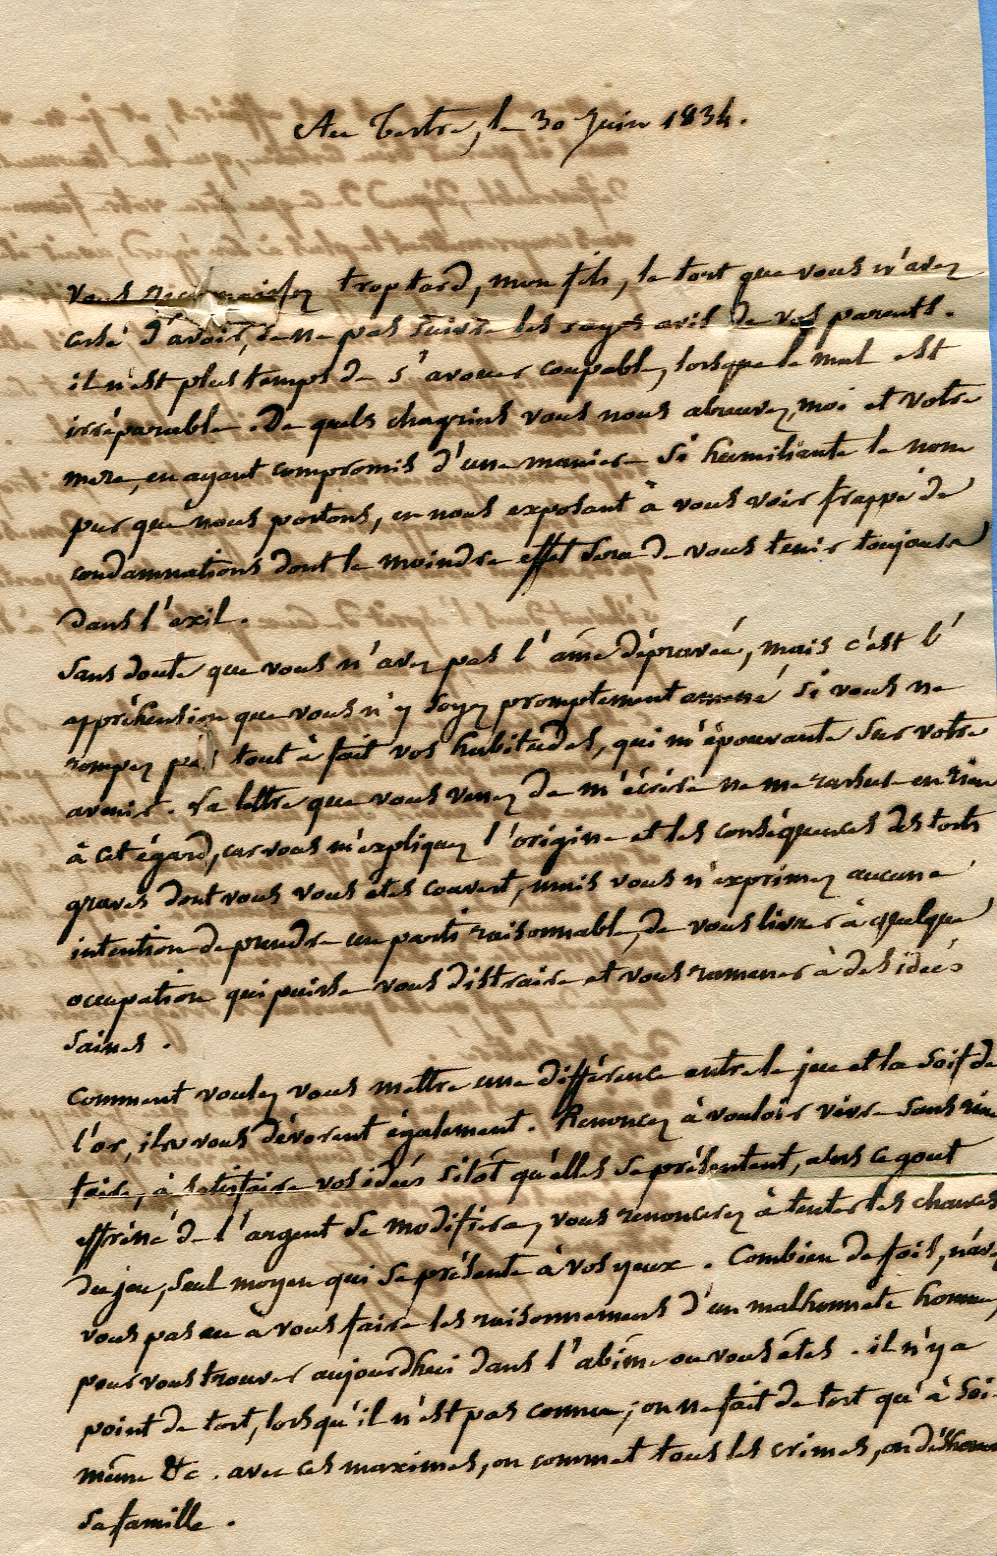 Au Tertre, le 30 Juin 1834.
Vous reconnaissez trop tard, mon fils, le tort que vous n'avez
cessé d'avoir, de ne pas suivre les sages avis de vos parents.
il n'est plus temps de s'avouer coupable, lorsque le mal est
irréparable. De quels chagrins vous nous abreuvez, moi et votre
mere, en ayant compromis d'une maniere si humiliante le nom
pur que nous portons, en nous exposant à vous voir frappé de
condamnations dont le moindre effet sera de vous tenir toujours
dans l'exil.
Sans doute que vous n'avez pas l'âme dépravée, mais c'est l'
appréhension que vous n'y soyez promptement amené si vous ne
rompez pas tout à fait vos habitudes, qui m'épouvante sur votre
avenir. La lettre que vous venez de m'écrire ne me rassure en rien
à cet égard, car vous m'expliquez l'origine et les conséquences des torts
graves dont vous vous etes couvert, mais vous n'exprimez aucune
intention de prendre un parti raisonnable, de vous livrer à quelque
occupation qui puisse vous distraire et vous ramener à des idées
saines.
Comment voulez vous mettre une différence entre le jeu et la soif de
l'or, ils vous dévorent également. Renoncez à vouloir vivre sans rien
faire, à satisfaire vos idées sitôt qu'elles se présentent, alors ce gout
effréné de l'argent se modifiera, vous renoncerez à tenter les chances
du jeu, seul moyen qui se présente à vos yeux. Combien de fois, n'avez
vous pas eu à vous faire les raisonnemens d'un malhonnete homme,
pour vous trouver aujourdhui dans l'abîme ou vous êtes. il n'y a
point de tort, lorsqu'il n'est pas connu; on ne fait de tort qu'à soi
même &c. avec ces maximes, on commet tous les crimes, on déshonore
sa famille.